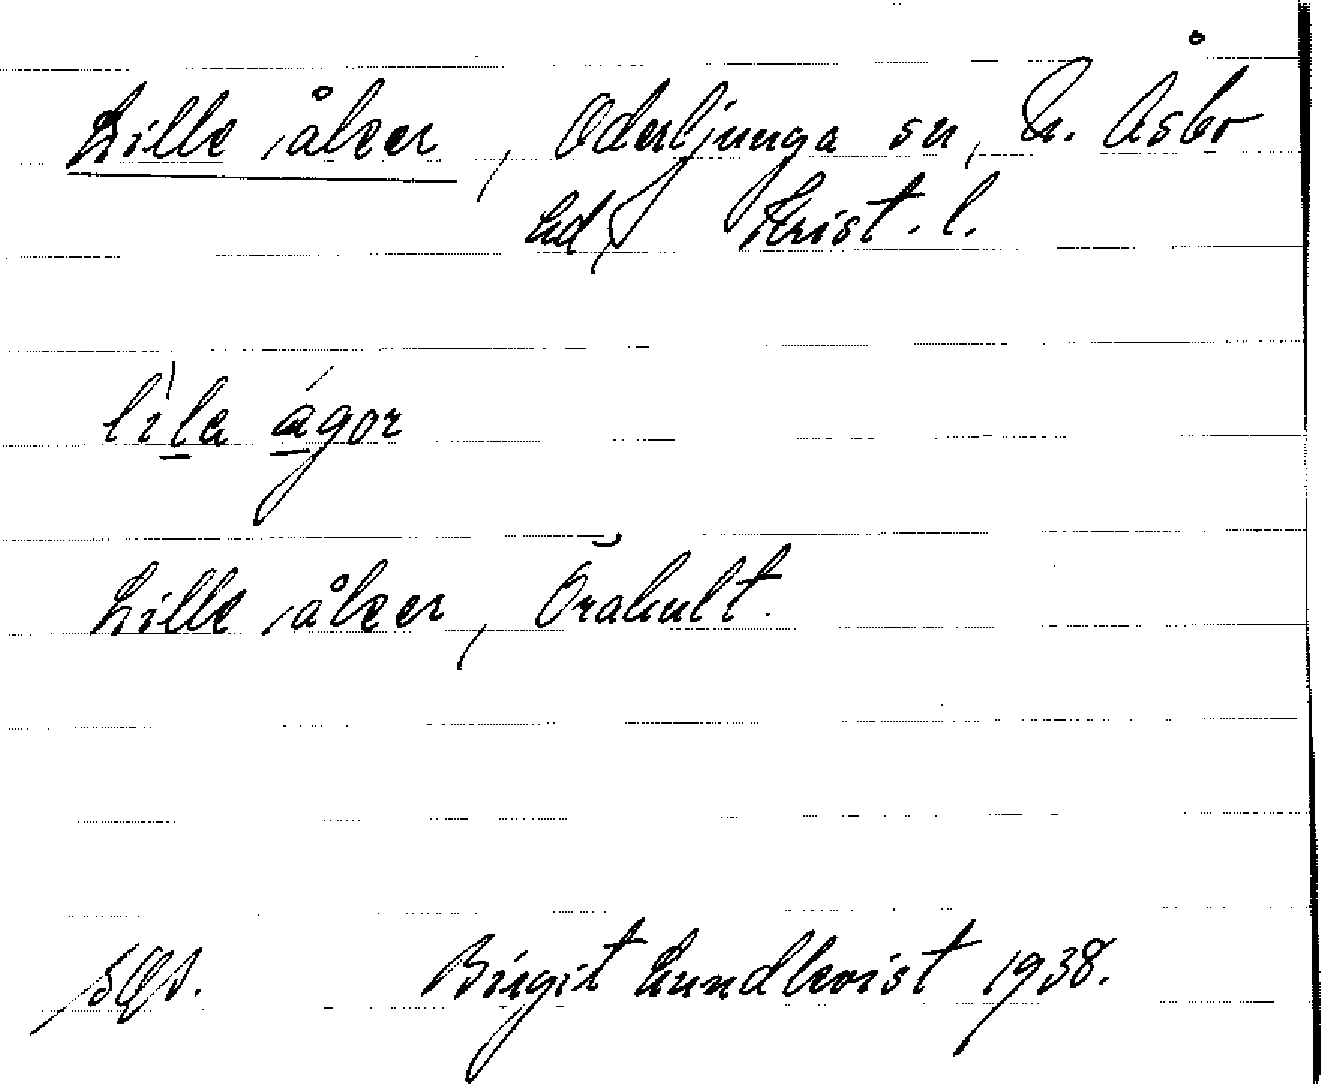 Lille åker, Oderljunga sn, N. Åsbo
hd, Krist. l.
lìla ágor
Lille åker, Örahult.
Birgit Lundkvist 1938.